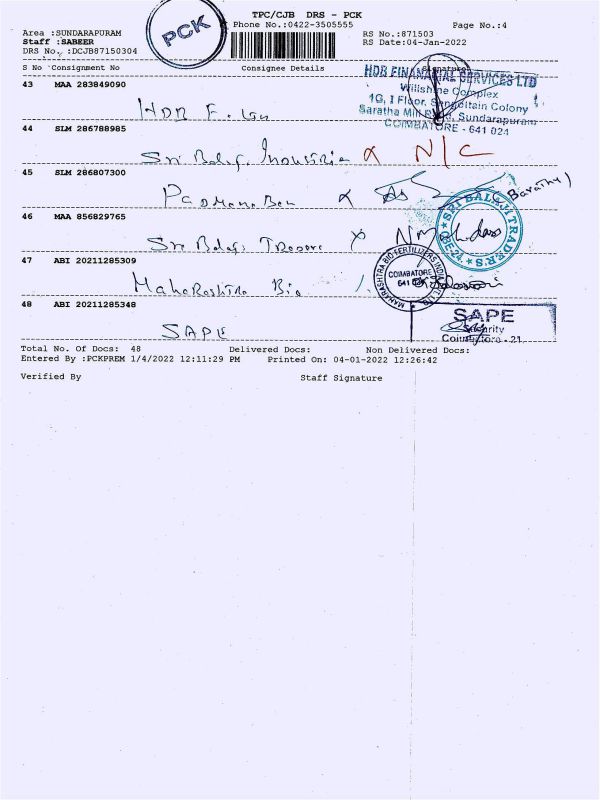 TPC/CJB DRS - PCK
Phone No.:0422-3505555
Page No.:4
PCK
Area :SUNDARAPURAM
Staff :SABEER
DRS No. :DCJB87150304
RS No.:871503
RS Date:04-Jan-2022
S No Consignment No Consignee Details Signature
43 MAA 283849090
HDB F.
HDB FINANCIAL SERVICES LTD
Willshine Complex
1G, I Floor, Colony
Saratha Mill Road, Sundarapuram
COIMBATORE - 641 024
44 SLM 286788985
Sri Balaji N/C
45 SLM 286807300
Barathy)
46 MAA 856829765
Sri Balaji
SRI BALAJI TRADERS
47 ABI 20211285309
Maharashtra Bio
MAHARASHTRA BIO FERTILIZERS INDIA PVT. LTD.
COIMBATORE
48 ABI 20211285348
SAPE
SAPE
Security
Coimbatore - 21
Total No. Of Docs: 48 Delivered Docs: Non Delivered Docs:
Entered By :PCKPREM 1/4/2022 12:11:29 PM Printed On: 04-01-2022 12:26:42
Verified By Staff Signature